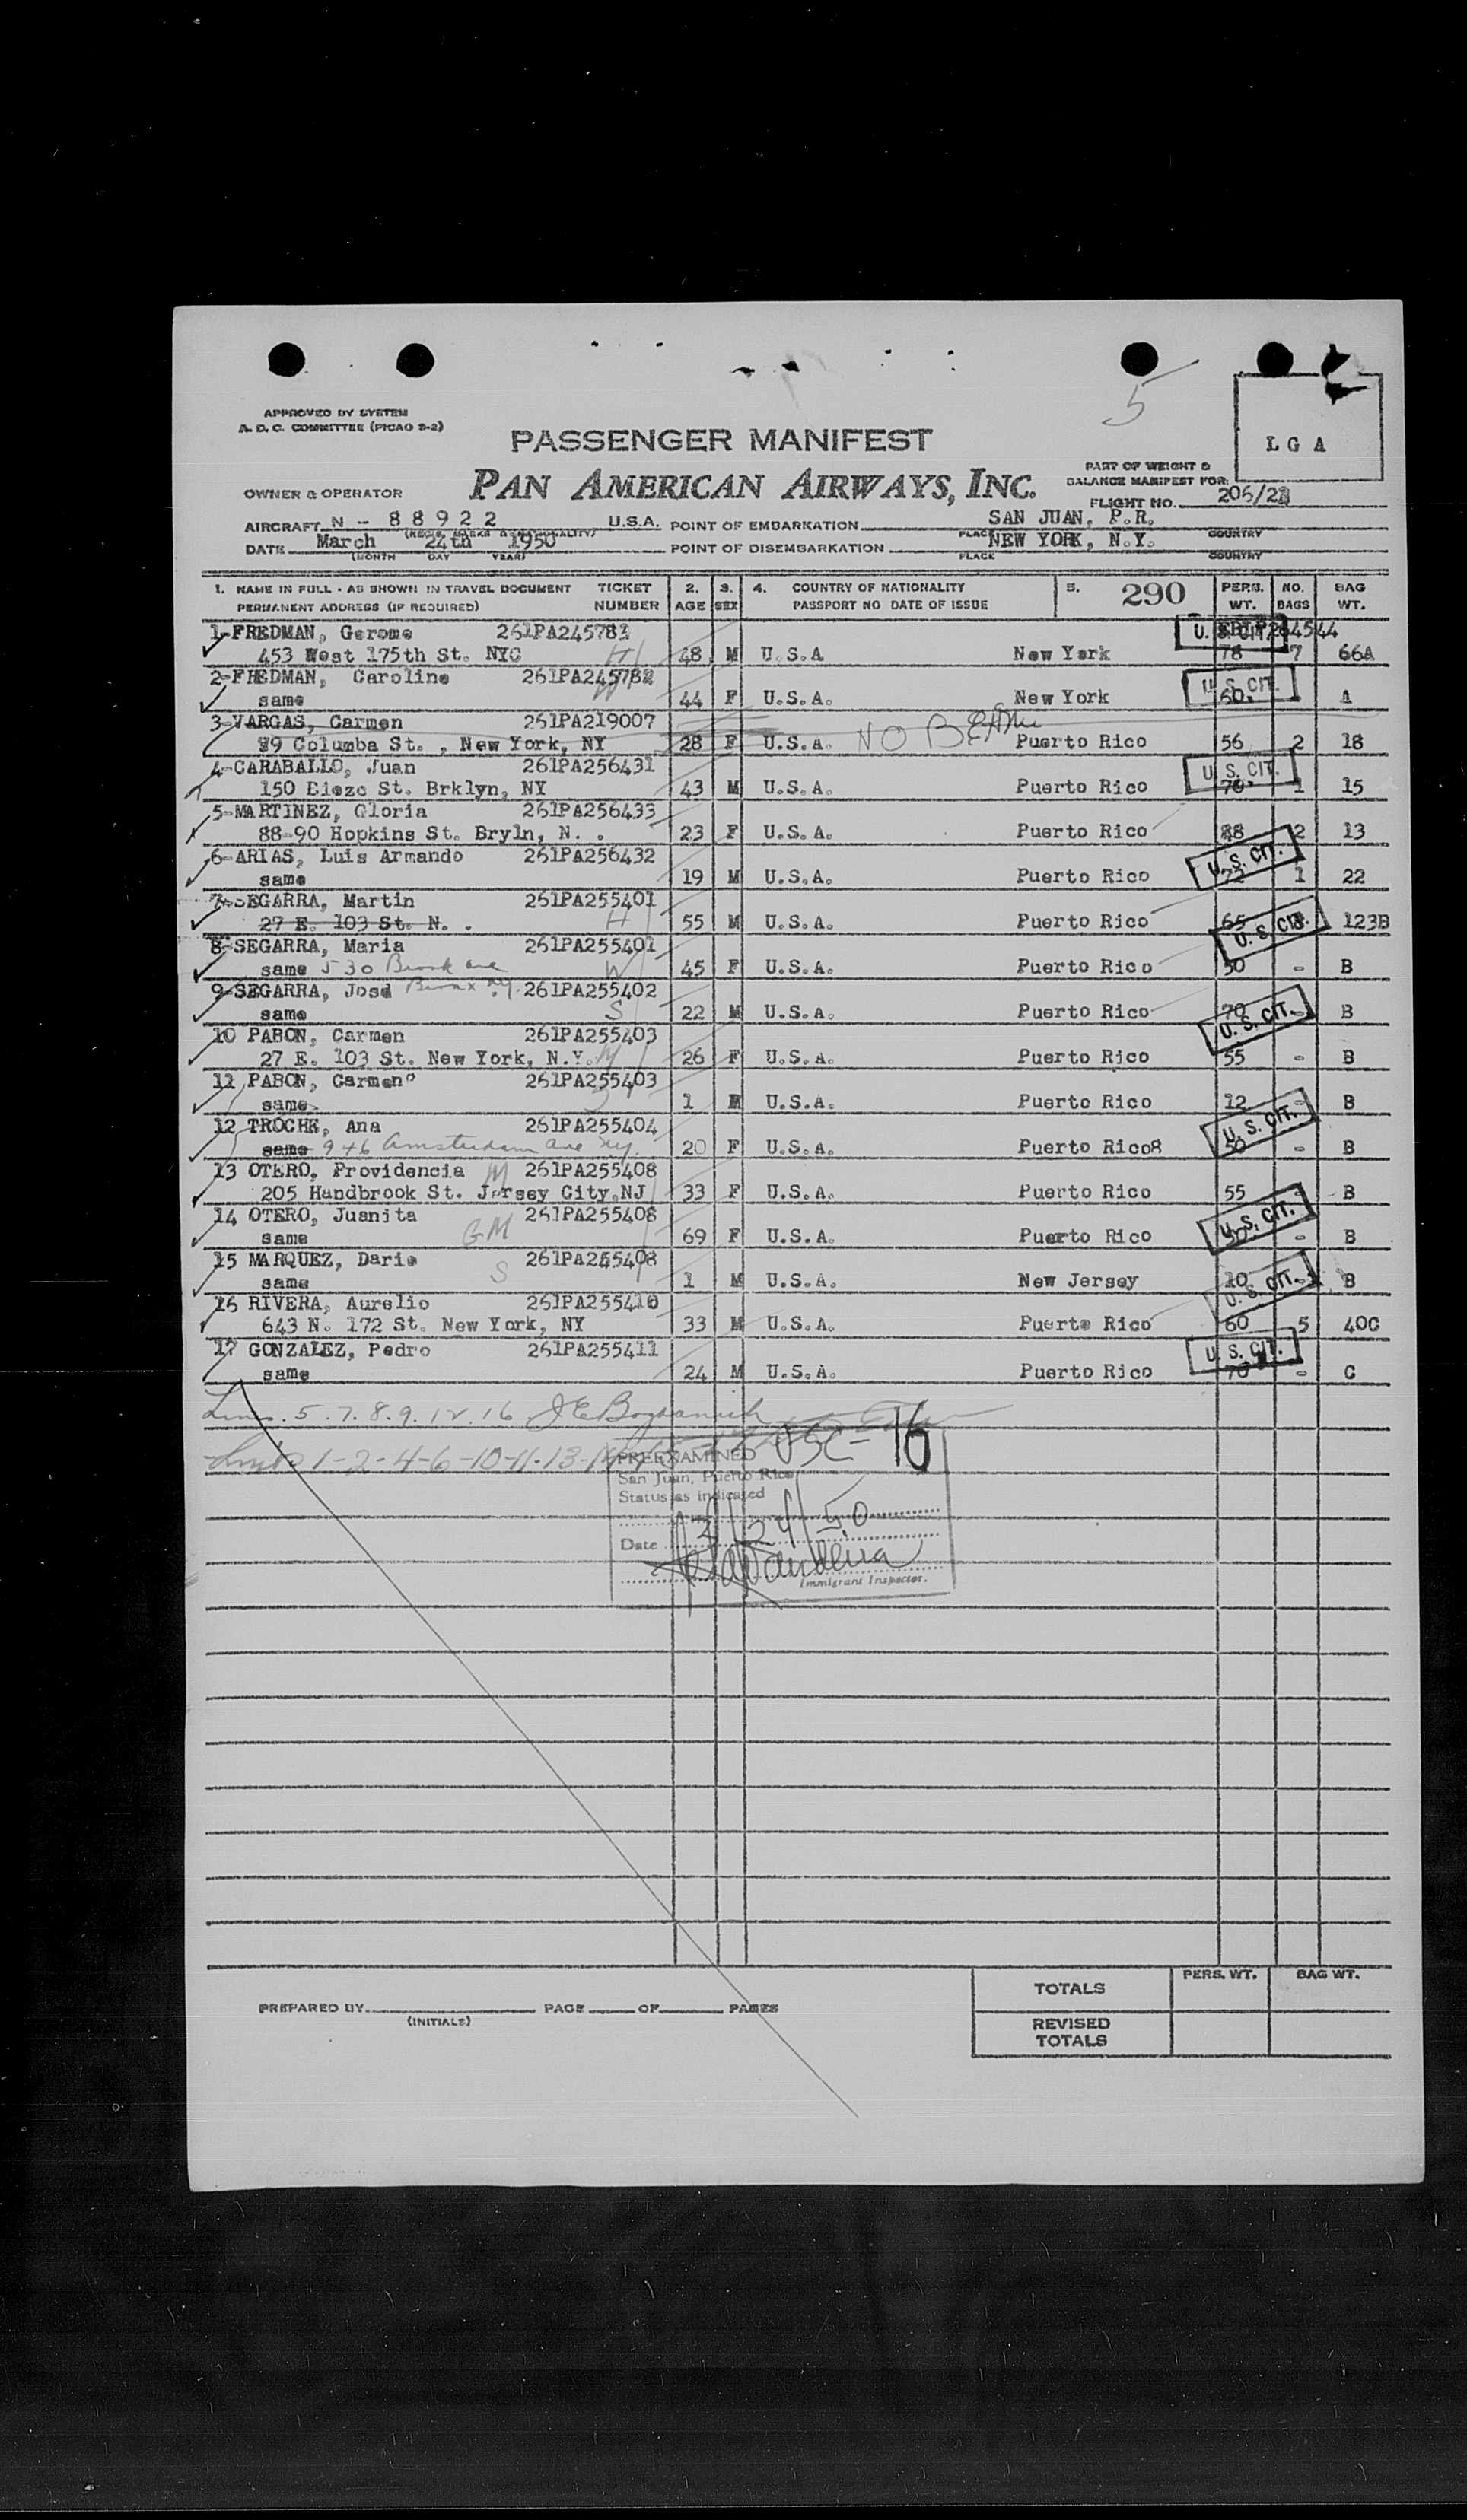 5
APPROVED BY SYSTEM
A. D. C. COMMITTEE (PICAO S-2)
L G A
PASSENGER MANIFEST
PAN AMERICAN AIRWAYS, INC.
PART OF WEIGHT &
BALANCE MANIFEST FOR:
OWNER & OPERATOR
FLIGHT NO. 206/23
AIRCRAFT N - 88922 U.S.A. POINT OF EMBARKATION SAN JUAN, P.R.
DATE March 24th 1950 POINT OF DISEMBARKATION NEW YORK, N.Y.
(MONTH DAY YEAR) PLACE COUNTRY
1. NAME IN FULL - AS SHOWN IN TRAVEL DOCUMENT TICKET 2. 3. 4. COUNTRY OF NATIONALITY 5. 290 PERS. NO. BAG
PERMANENT ADDRESS (IF REQUIRED) NUMBER AGE SEX PASSPORT NO DATE OF ISSUE WT. BAGS WT.
1-FREDMAN, Gerome 261PA245781 U. S. CIT.
453 West 175th St. NYC H 48 M U.S.A New York 78 7 66A
2-FREDMAN, Caroline 261PA245782 U. S. CIT.
same W 44 F U.S.A. New York 60 A
3-VARGAS, Carmen 261PA219007
89 Columba St. , New York, NY 28 F U.S.A. NO Puerto Rico 56 2 18
4-CARABALLO, Juan 261PA256431 U. S. CIT.
150 St. Brklyn, NY 43 M U.S.A. Puerto Rico 70 1 15
5-MARTINEZ, Gloria 261PA256433
88-90 Hopkins St. Bryln, N. . 23 F U.S.A. Puerto Rico 88 2 13
6-ARIAS, Luis Armando 261PA256432 U. S. CIT.
same 19 M U.S.A. Puerto Rico 72 1 22
7-SEGARRA, Martin 261PA255401
27 E. 103 St. N. . H 55 M U.S.A. Puerto Rico 65 123B
8-SEGARRA, Maria 261PA255401 U. S. CIT.
same 530 Brook ave W 45 F U.S.A. Puerto Rico 50 - B
9-SEGARRA, Jose Bronx ny. 261PA255402
same S 22 M U.S.A. Puerto Rico 70 - B
10 PABON, Carmen 261PA255403 U. S. CIT.
27 E. 103 St. New York, N.Y. M 26 F U.S.A. Puerto Rico 55 - B
11 PABON, Carmen 261PA255403
same S 1 M U.S.A. Puerto Rico 12 - B
12 TROCHE, Ana 261PA255404 U. S. CIT.
same 946 Amsterdam ave ny. 20 F U.S.A. Puerto Rico8 50 - B
13 OTERO, Providencia M 261PA255408
205 Handbrook St. Jersey City,NJ 33 F U.S.A. Puerto Rico 55 - B
14 OTERO, Juanita 261PA255408 U. S. CIT.
same GM 69 F U.S.A. Puerto Rico 50 - B
15 MARQUEZ, Dario 261PA255408
same S 1 M U.S.A. New Jersey 10 - B
16 RIVERA, Aurelio 261PA255410 U. S. CIT.
643 N. 172 St. New York, NY 33 M U.S.A. Puerto Rico 60 5 40C
17 GONZALEZ, Pedro 261PA255411 U. S. CIT.
same 24 M U.S.A. Puerto Rico 70 - C
Lines. 5. 7. 8. 9. 12. 16
1-2-4-6-10-11-13-
USC-16
PREEXAMINED
San Juan, Puerto Rico
Status as indicated
Date 3/24/50
Immigrant Inspector.
PREPARED BY PAGE OF PAGES
(INITIALS)
PERS. WT. BAG WT.
TOTALS
REVISED
TOTALS